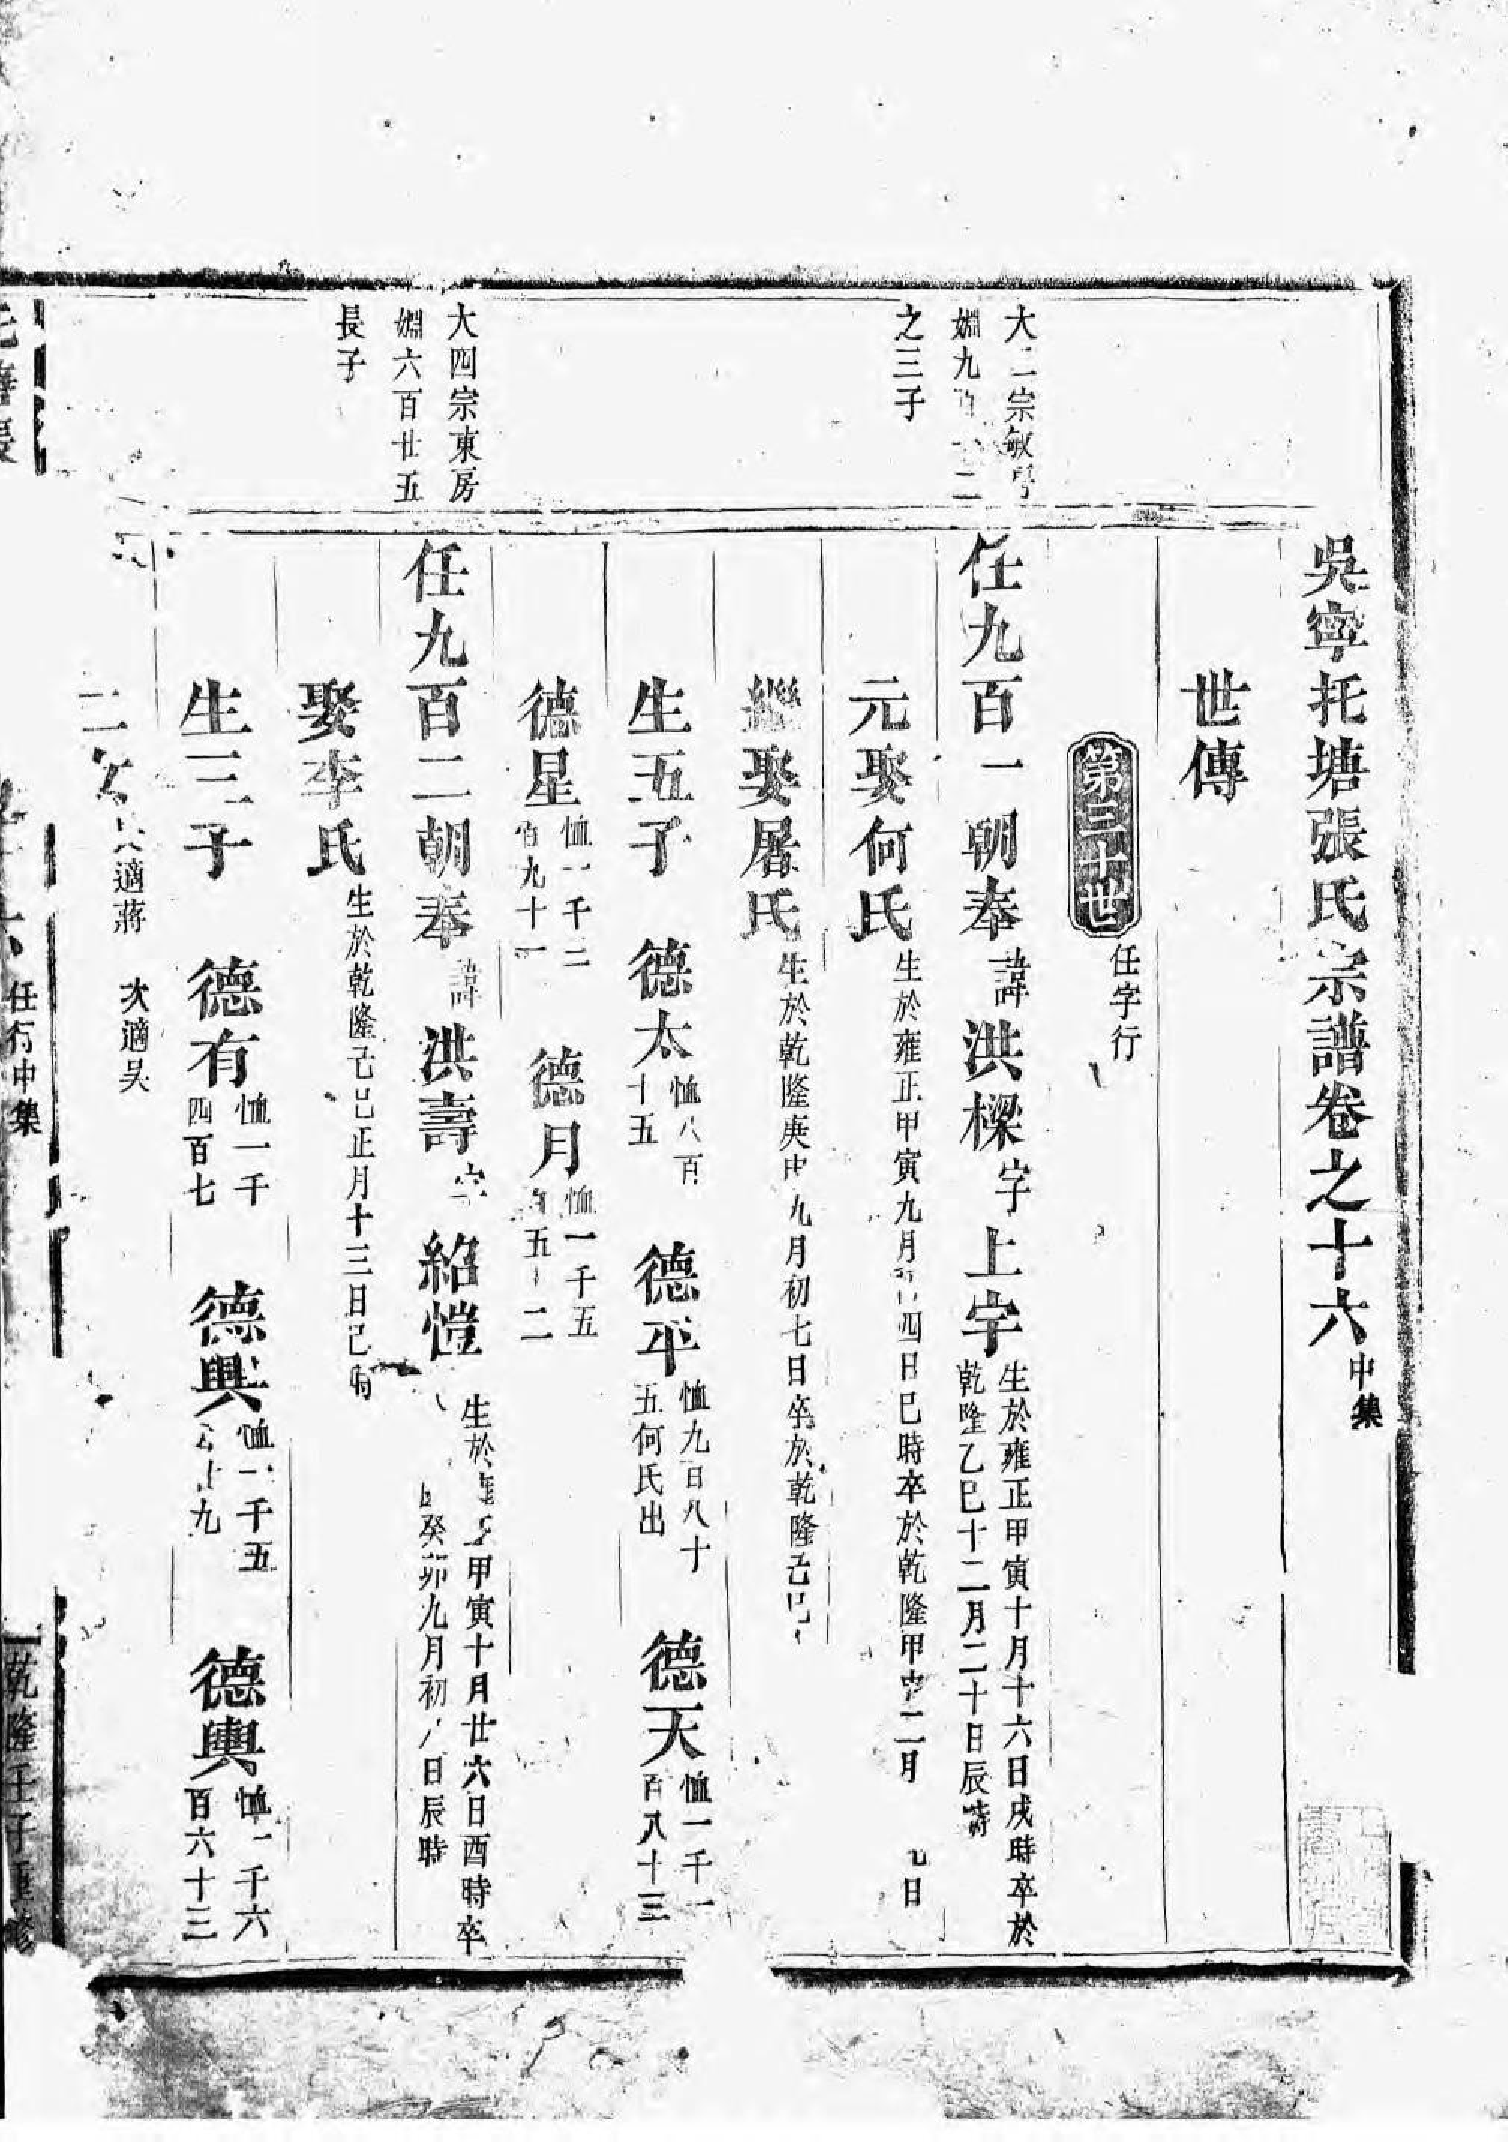 吳寧托塘張氏宗譜卷之十六中集
世傳
第三十世任字行
大二宗敏房
㛰九百二
之三子
任九百一朝奉諱洪樑字上宇生於雍正甲寅十月十六日戌時卒於
乾隆乙巳十二月二十日辰時
元娶何氏生於雍正甲寅九月四日巳時卒於乾隆甲二月日
繼娶屠氏生於乾隆庚申九月初七日卒於乾隆己巳
生五子 德太恤八百十五 德平恤九百八十五何氏出 德天恤一千一百八十三
德星恤一千二百九十一 德月恤一千五百五十二
大四宗東房
㛰六百廿五
長子
任九百二朝奉諱洪壽字紹愷生於雍正甲寅十月廿六日酉時卒
癸卯九月初八日辰時
娶李氏生於乾隆己巳正月十三日巳時
生三子 德有恤一千四百七 德興恤一千五百十九 德輿恤一千六百六十三
二女長適蔣 次適吳
任行中集
乾隆壬子重修